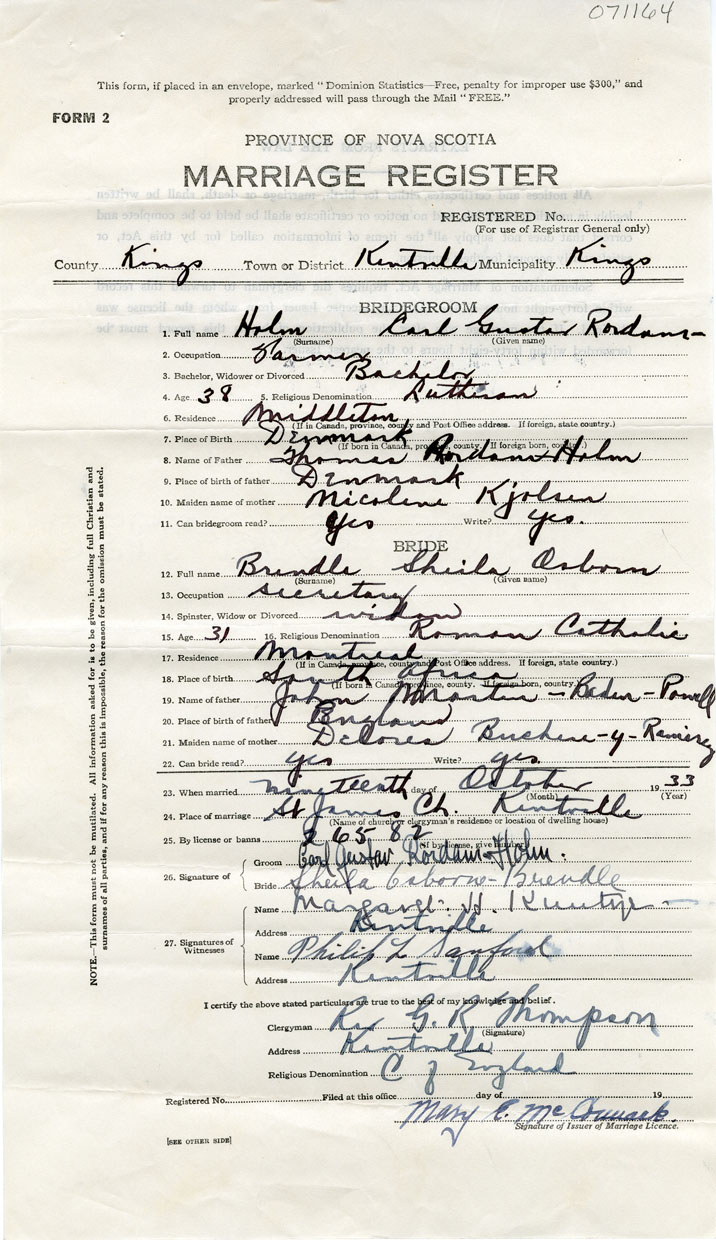 071164
This form, if placed in an envelope, marked "Dominion Statistics—Free, penalty for improper use $300," and
properly addressed will pass through the Mail "FREE."
FORM 2
PROVINCE OF NOVA SCOTIA
MARRIAGE REGISTER
REGISTERED No.
(For use of Registrar General only)
County Kings Town or District Kentville Municipality Kings
BRIDEGROOM
1. Full name Holm Carl Gustav Rordam-
(Surname) (Given name)
2. Occupation Farmer
3. Bachelor, Widower or Divorced Bachelor
4. Age 38 5. Religious Denomination Lutheran
6. Residence Middleton
(If in Canada, province, county and Post Office address. If foreign, state country.)
7. Place of Birth Denmark
(If born in Canada, province, county. If foreign born, country.)
8. Name of Father Thomas Rordam Holm
9. Place of birth of father Denmark
10. Maiden name of mother Nicoline Kjolsen
11. Can bridegroom read? yes Write? yes.
BRIDE
12. Full name Brendle Sheila Osborn
(Surname) (Given name)
13. Occupation secretary
14. Spinster, Widow or Divorced widow
15. Age 31 16. Religious Denomination Roman Catholic
17. Residence Montreal
(If in Canada, province, county and Post Office address. If foreign, state country.)
18. Place of birth South Africa
(If born in Canada, province, county. If foreign born, country.)
19. Name of father John - Baden-Powell
20. Place of birth of father England
21. Maiden name of mother Delores -y-Ramirez
22. Can bride read? yes Write? yes
23. When married nineteenth day of October 1933
(Month) (Year)
24. Place of marriage St James Ch. Kentville
(Name of church or clergyman's residence or location of dwelling house)
25. By license or banns 26582
(if by license, give number)
26. Signature of
Groom Carl Gustav Rordam-Holm.
Bride Sheila Osborne-Brendle
27. Signatures of
Witnesses
Name Margaret H.
Address Kentville
Name Philip L Sanford
Address Kentville
I certify the above stated particulars are true to the best of my knowledge and belief.
Clergyman G. R. Thompson
(Signature)
Address Kentville
Religious Denomination C of England
Registered No. Filed at this office day of 19
Mary E. McCormack.
Signature of Issuer of Marriage Licence.
[SEE OTHER SIDE]
NOTE.—This form must not be mutilated. All information asked for is to be given, including full Christian and
surnames of all parties, and if for any reason this is impossible, the reason for the omission must be stated.